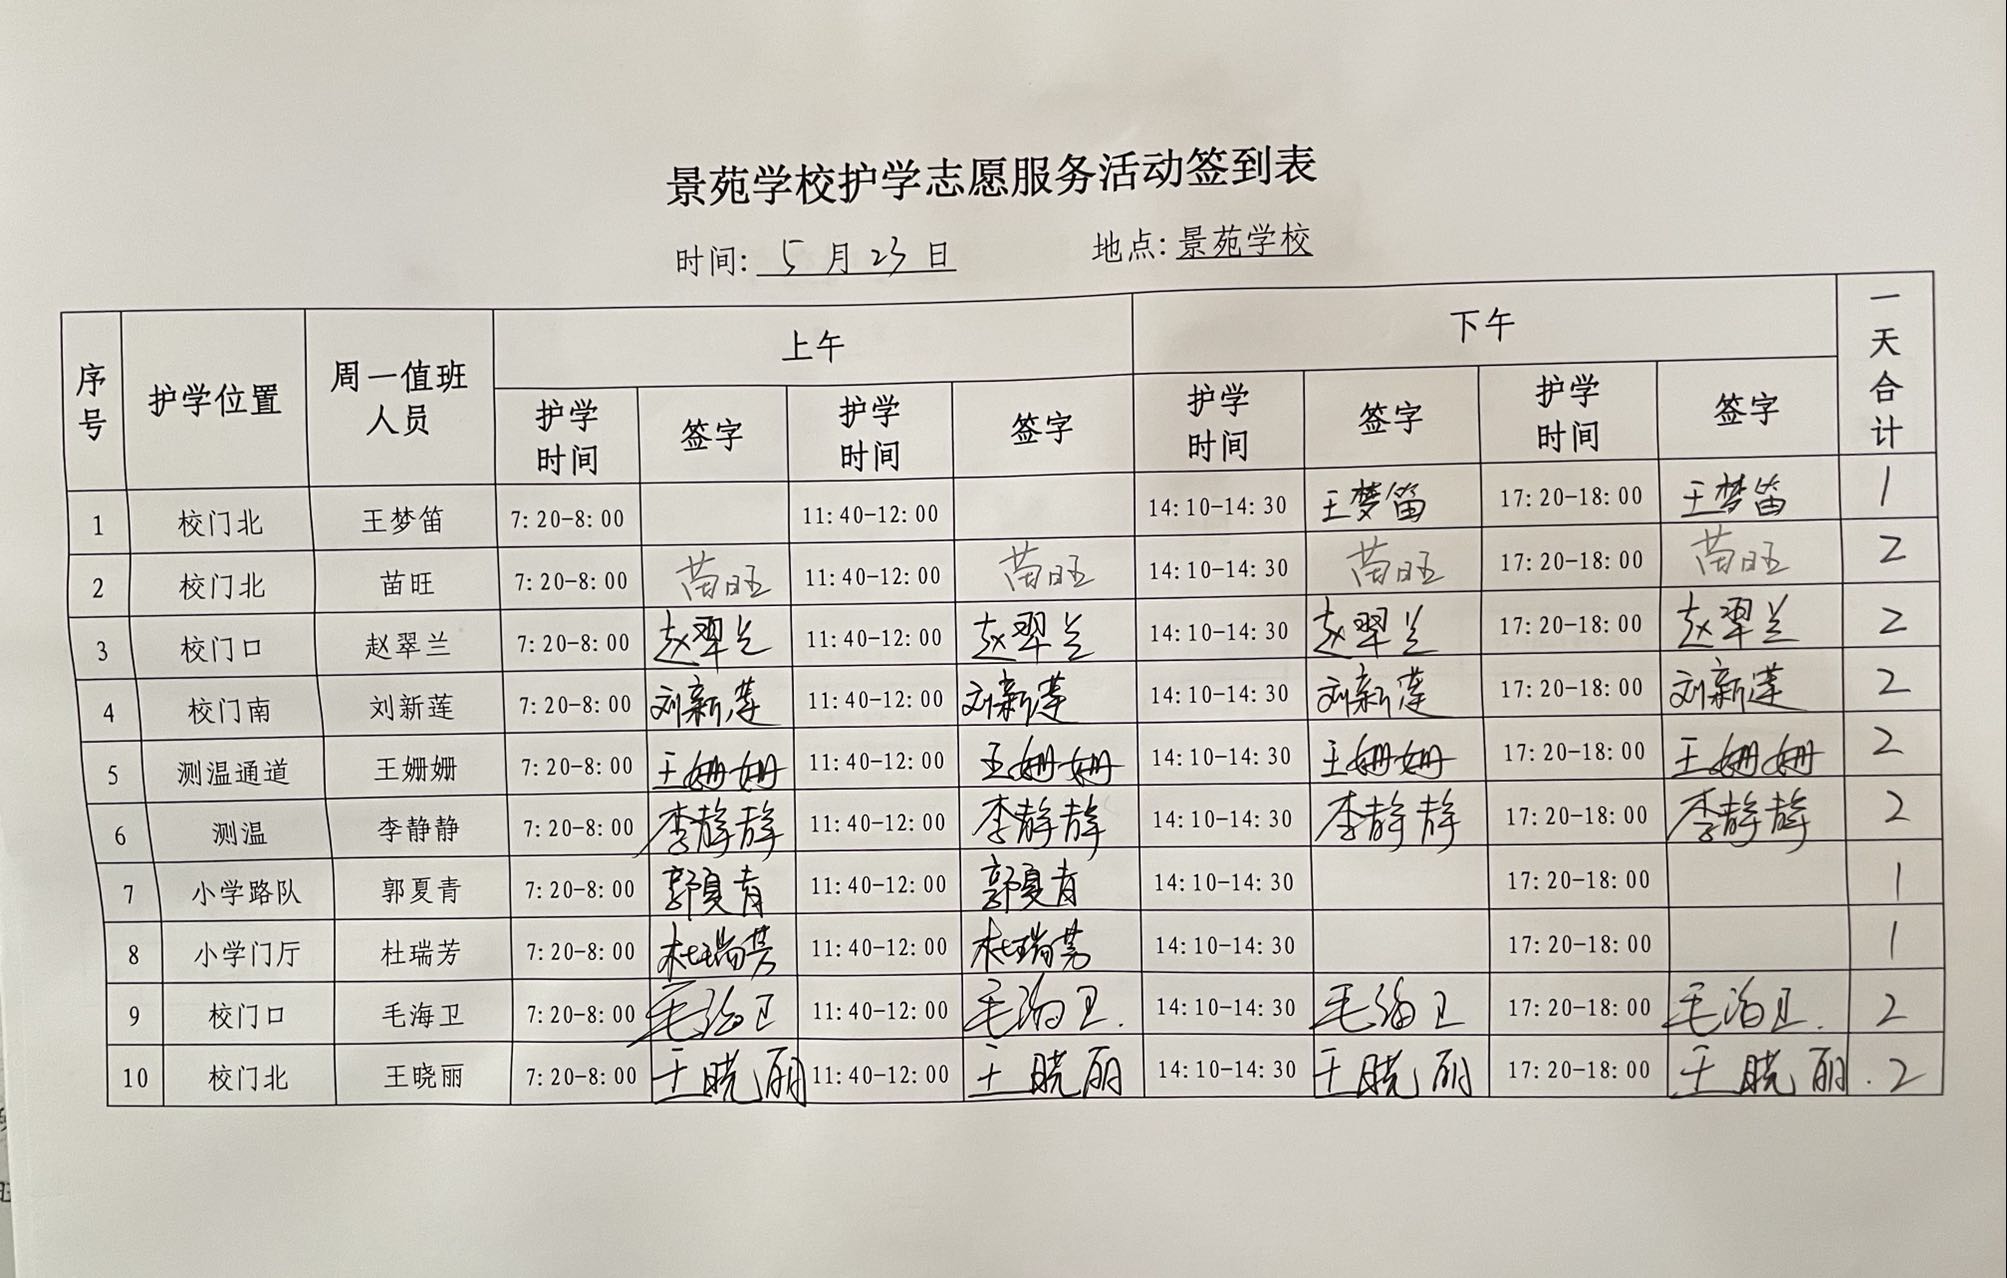 景苑学校护学志愿服务活动签到表
时间: 5月23日 地点: 景苑学校
序号 护学位置 周一值班人员 上午 下午 一天合计
护学时间 签字 护学时间 签字 护学时间 签字 护学时间 签字
1 校门北 王梦笛 7:20-8:00 11:40-12:00 14:10-14:30 王梦笛 17:20-18:00 王梦笛 1
2 校门北 苗旺 7:20-8:00 苗旺 11:40-12:00 苗旺 14:10-14:30 苗旺 17:20-18:00 苗旺 2
3 校门口 赵翠兰 7:20-8:00 赵翠兰 11:40-12:00 赵翠兰 14:10-14:30 赵翠兰 17:20-18:00 赵翠兰 2
4 校门南 刘新莲 7:20-8:00 刘新莲 11:40-12:00 刘新莲 14:10-14:30 刘新莲 17:20-18:00 刘新莲 2
5 测温通道 王姗姗 7:20-8:00 王姗姗 11:40-12:00 王姗姗 14:10-14:30 王姗姗 17:20-18:00 王姗姗 2
6 测温 李静静 7:20-8:00 李静静 11:40-12:00 李静静 14:10-14:30 李静静 17:20-18:00 李静静 2
7 小学路队 郭夏青 7:20-8:00 郭夏青 11:40-12:00 郭夏青 14:10-14:30 17:20-18:00 1
8 小学门厅 杜瑞芳 7:20-8:00 杜瑞芳 11:40-12:00 杜瑞芳 14:10-14:30 17:20-18:00 1
9 校门口 毛海卫 7:20-8:00 毛海卫 11:40-12:00 毛海卫. 14:10-14:30 毛海卫 17:20-18:00 毛海卫. 2
10 校门北 王晓丽 7:20-8:00 王晓丽 11:40-12:00 王晓丽 14:10-14:30 王晓丽 17:20-18:00 王晓丽. 2